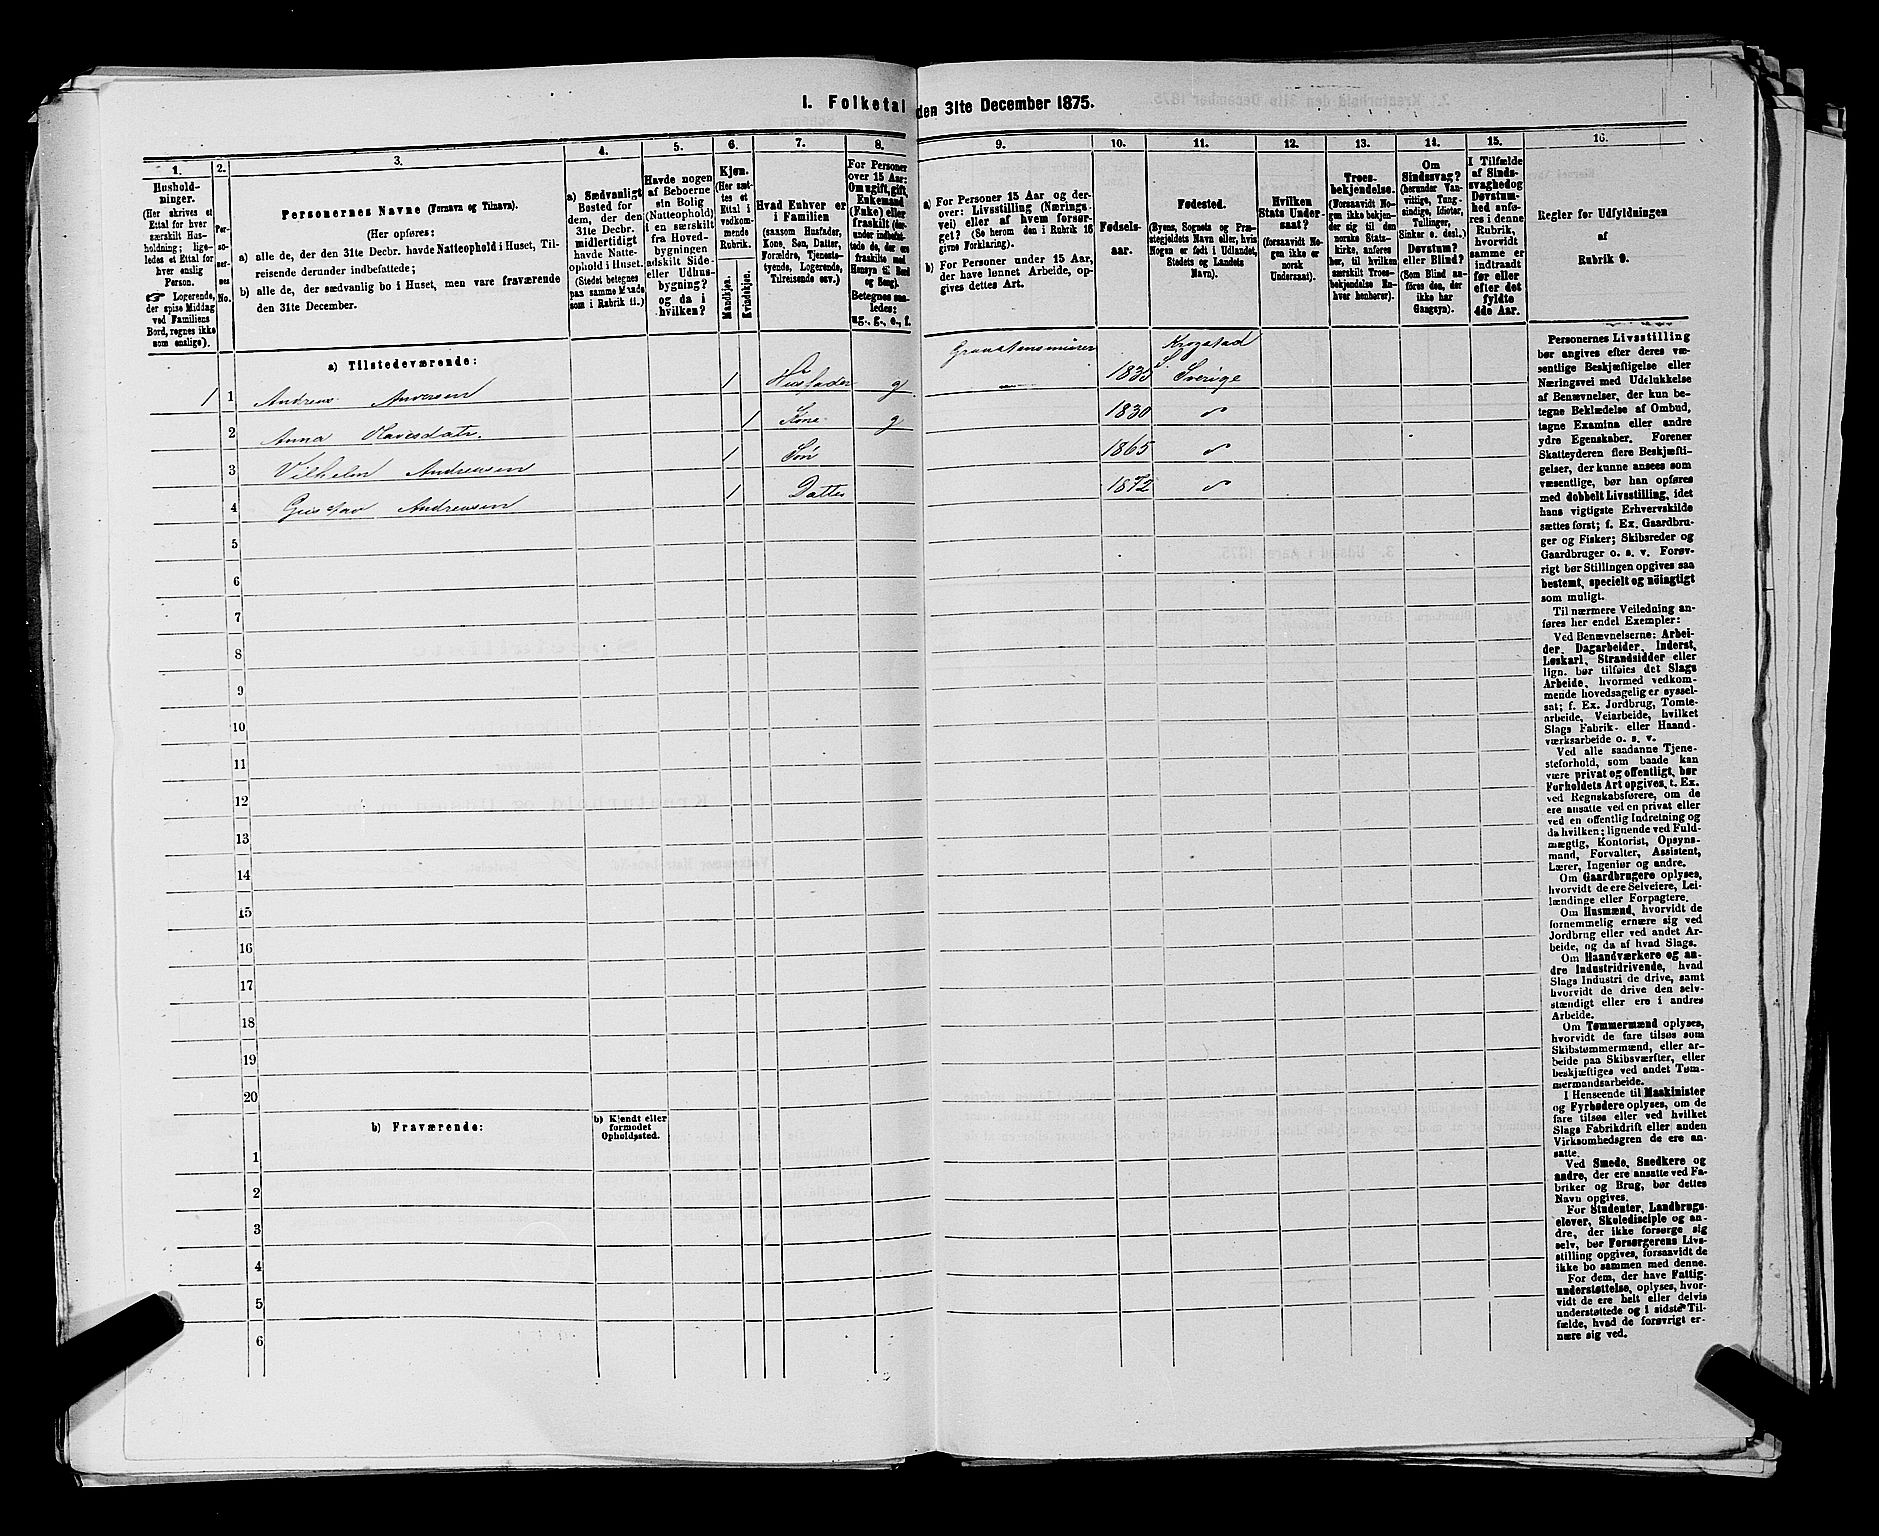 I. Folketal den 31te December 1875.
1.
Hushold-
ninger.
(Her skrives et
Ettal for hver
særskilt Hus-
holdning; lige-
ledes et Ettal for
hver enslig
Person.
☞ Logerende,
der spise Middag
ved Familiens
Bord, regnes ikke
som enslige).
2.
Per-
so-
ner-
nes
No.
3.
Personernes Navne (Fornavn og Tilnavn).
(Her opføres:
a) alle de, der den 31te Decbr. havde Natteophold i Huset, Til-
reisende derunder indbefattede;
b) alle de, der sædvanlig bo i Huset, men vare fraværende
den 31te December.
4.
a) Sædvanligt
Bosted for
dem, der den
31te Decbr.
midlertidigt
havde Natte-
ophold i Huset.
(Stedet betegnes
paa samme Maade
som i Rubrik 11.)
5.
Havde nogen
af Beboerne
sin Bolig
(Natteophold)
i en særskilt
fra Hoved-
bygningen
adskilt Side-
eller Udhus-
bygning?
og da i
hvilken?
6.
Kjøn.
(Her sæt-
tes et
Ettal i
vedkom-
mende
Rubrik.
Mandkjøn.
Kvindekjøn.
7.
Hvad Enhver er
i Familien
(saasom Husfader,
Kone, Søn, Datter,
Forældre, Tjeneste-
tyende, Logerende,
Tilreisende osv.)
8.
For Personer
over 15 Aar:
Om ugift, gift,
Enkemand
(Enke) eller
fraskilt (her-
under indbefat-
tede de, der ere
fraskilte med
Hensyn til Bord
og Seng).
Betegnes saa-
ledes:
ug., g., e., f.
9.
a) For Personer 15 Aar og der-
over: Livsstilling (Nærings-
vei) eller af hvem forsør-
get? (Se herom den i Rubrik 16
givne Forklaring).
b) For Personer under 15 Aar,
der have lønnet Arbeide, op-
gives dettes Art.
10.
Fødsels-
aar.
11.
Fødested.
(Byens, Sognets og Præ-
stegjeldets Navn eller, hvis
Nogen er født i Udlandet,
Stedets og Landets
Navn).
12.
Hvilken
Stats Under-
saat?
(forsaavidt No-
gen ikke er
norsk
Undersaat).
13.
Troes-
bekjendelse.
(Forsaavidt No-
gen ikke bekjen-
der sig til den
norske Stats-
kirke, anføres
her, til hvilken
særskilt Troes-
bekjendelse En-
hver henhører).
14.
Om
Sindssvag?
(herunder Van-
vittige, Tung-
sindige, Idioter,
Tullinger,
Sinker o. desl.)
Døvstum?
eller Blind?
(Som Blind an-
føres den, der
ikke har
Gangsyn).
15.
I Tilfælde
af Sinds-
svaghed og
Døvstum-
hed anfø-
res i denne
Rubrik,
hvorvidt
samme er
indtraadt
før eller
efter det
fyldte
4de Aar.
16.
Regler for Udfyldningen
af
Rubrik 9.
a) Tilstedeværende:
Granstensmurer Krogstad
1 1 Andreas Andersen 1 Husfader g. 1835 S. Sverige
2 Anna Davisdatr. 1 Kone g 1830
3 Vilhelm Andreasen 1 Søn 1865
4 Gustav Andreasen 1 Datter 1872
5
6
7
8
9
10
11
12
13
14
15
16
17
18
19
20
b) Fraværende:
b) Kjendt eller
formodet
Opholdssted.
1
2
3
4
5
6
Personernes Livsstilling
bør angives efter deres væ-
sentlige Beskjæftigelse eller
Næringsvei med Udelukkelse
af Benævnelser, der kun be-
tegne Beklædelse af Ombud,
tagne Examina eller andre
ydre Egenskaber. Forener
Skatteyderen flere Beskjæfti-
gelser, der kunne ansees som
væsentlige, bør han opføres
med dobbelt Livsstilling, idet
hans vigtigste Erhvervskilde
sættes først; f. Ex. Gaardbru-
ger og Fisker; Skibsreder og
Gaardbruger o. s. v. Forøv-
rigt bør Stillingen opgives saa
bestemt, specielt og nöiagtigt
som muligt.
Til nærmere Veiledning an-
føres her endel Exempler:
Ved Benævnelserne: Arbei-
der, Dagarbeider, Inderst,
Løskarl, Strandsidder eller
lign. bør tilføies det Slags
Arbeide, hvormed vedkom-
mende hovedsagelig er syssel-
sat; f. Ex. Jordbrug, Tomte-
arbeide, Veiarbeide, hvilket
Slags Fabrik- eller Haand-
værksarbeide o. s. v.
Ved alle saadanne Tjene-
steforhold, som baade kan
være privat og offentligt, bør
Forholdets Art opgives, t. Ex.
ved Regnskabsførere, om de
ere ansatte ved en privat eller
ved en offentlig Indretning og
da hvilken; lignende ved Fuld-
mægtig, Kontorist, Opsyns-
mand, Forvalter, Assistent,
Lærer, Ingeniør og andre.
Om Gaardbrugere oplyses,
hvorvidt de ere Selveiere, Lei-
lændinge eller Forpagtere.
Om Husmænd, hvorvidt de
fornemmelig ernære sig ved
Jordbrug eller ved andet Ar-
beide, og da af hvad Slags.
Om Haandværkere og an-
dre Industridrivende, hvad
Slags Industri de drive, samt
hvorvidt de drive den selv-
stændigt eller ere i andres
Arbeide.
Om Tømmermænd oplyses,
hvorvidt de fare tilsøs som
Skibstømmermænd, eller ar-
beide paa Skibsværfter, eller
beskjæftiges ved andet Tøm-
mermandsarbeide.
I Henseende til Maskinister
og Fyrbødere oplyses, om de
fare tilsøs eller ved hvilket
Slags Fabrikdrift eller anden
Virksomhedsgren de ere an-
satte.
Ved Smede, Snedkere og
andre, der ere ansatte ved Fa-
briker og Brug, bør dettes
Navn opgives.
For Studenter, Landbrugs-
elever, Skoledisciple og an-
dre, der ikke forsørge sig
selv, bør Forsørgerens Livs-
stilling opgives, forsaavidt de
ikke bo sammen med denne.
For dem, der have Fattig-
understøttelse, oplyses, hvor-
vidt de ere helt eller delvis
understøttede og i sidste Til-
fælde, hvad de forøvrigt er-
nære sig ved.